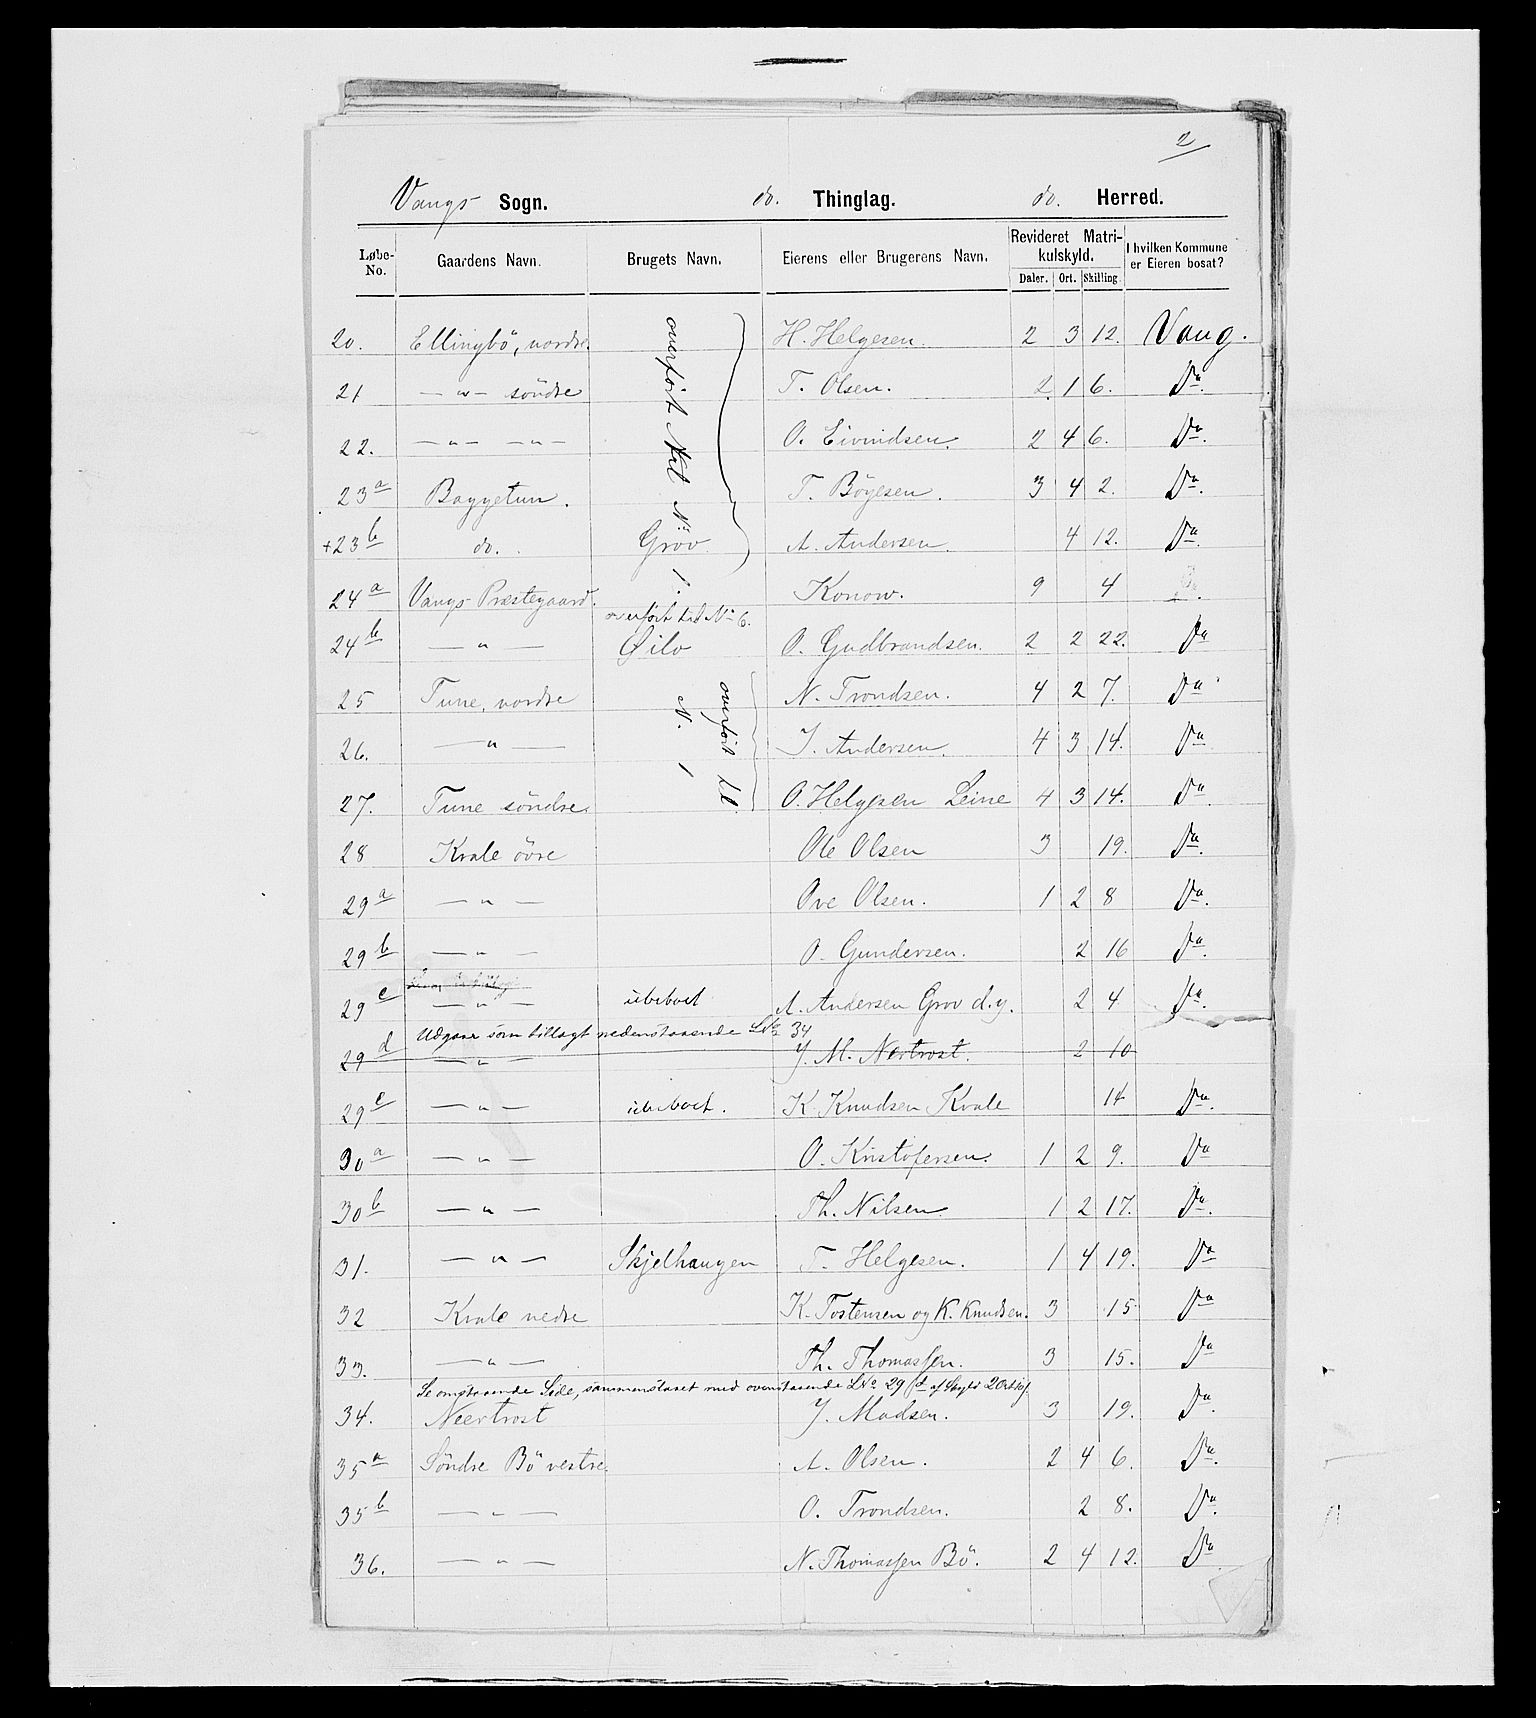 2
Vangs Sogn. do. Thinglag. do. Herred.
Løbe-No. Gaardens Navn. Brugets Navn. Eierens eller Brugerens Navn. Revideret Matrikulskyld. Daler. Ort. Skilling I hvilken Kommune er Eieren bosat?
overført til No 1.
20. Ellingbö, nordre H. Helgesen. 2 3 12. Vang.
21 — " — söndre T. Olsen. 2 1 6. Do.
22. — " — — " — O. Eivindsen. 2 4 6. Do.
23 a Baggetun. T. Böyesen. 3 4 2. Do.
+23 b do. Grov A. Andersen. 4 12. Do.
24 a Vangs Præstegaard. Konow. 9 4
overført til No 6.
24 b — " — Øilo O. Gudbrandsen. 2 2 22. Do
overført til N. 1
25 Tune, nordre N. Trondsen. 4 2 7. Do
26. — " — J. Andersen. 4 3 14. Do
27. Tune söndre O. Helgesen Leine 4 3 14. Do.
28 Kvale övre Ole Olsen 3 19. Do.
29 a — " — Ove Olsen. 1 2 8 Do.
29 b — " — O. Gundersen. 2 16 Do.
29 c — " — ubeboet A. Andersen Grov d.y. 2 4 Do.
Udgaar som tillagt nedenstaaende LNo 34
29 d — " — J. M. Nertrost. 2 10
29 e — " — ubeboet. K. Knudsen Kvale 14 Do.
30 a — " — O. Kristofersen. 1 2 9. Do
30 b — " — Th. Nilsen. 1 2 17. Do.
31. — " — Skjelhaugen T. Helgesen. 1 4 19. Do
32 Kvale nedre K. Tostensen og K. Knudsen. 3 15 Do
33. — " — Th. Thomassen. 3 15. Do
Se omstaaende Side, sammenslaaet med ovenstaaende LNo 29 d af Skyld 2 Ort 10 s.
34. Neertrost J. Madsen. 3 19. Do.
35 a Söndre Bö vestre. A. Olsen. 2 4 6. Do.
35 b — " — O. Trondsen. 2 8. Do.
36. — " — N. Thomassen Bö. 2 4 12. Do